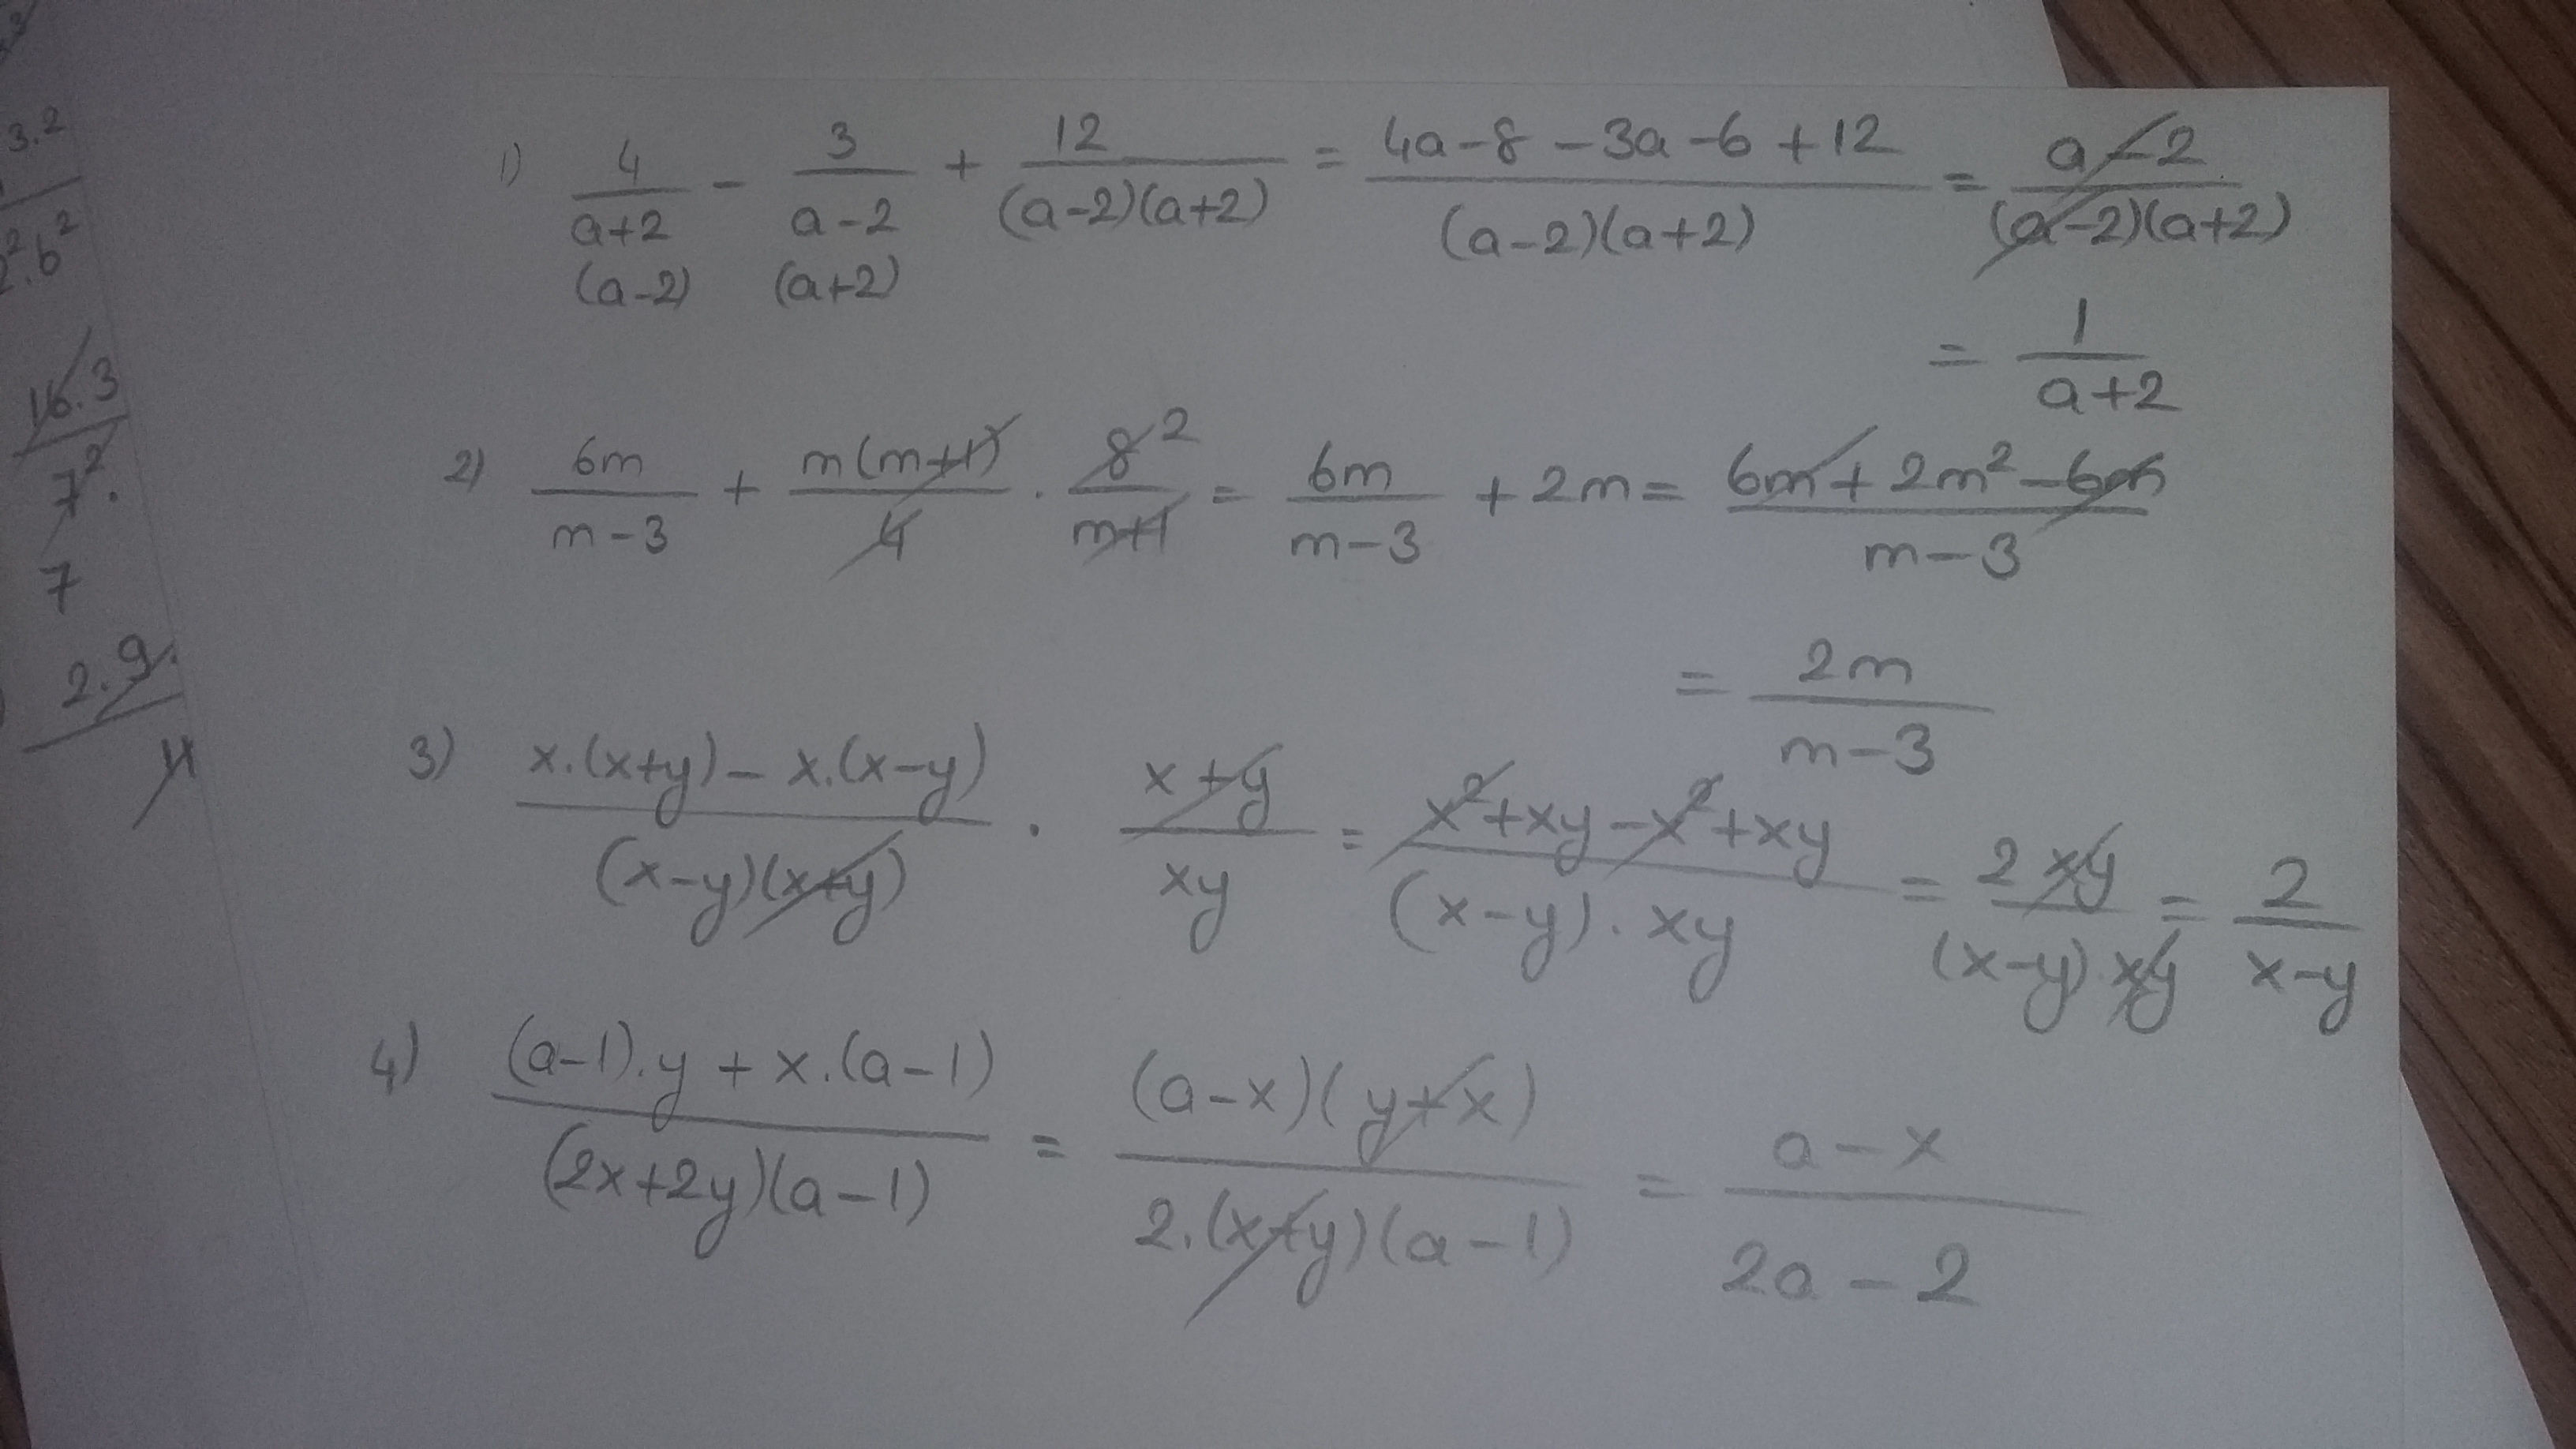 3.2
2².b²
16.3
7².
7
2.9.
4
1) 4/(a+2) - 3/(a-2) + 12/((a-2)(a+2)) = (4a-8-3a-6+12)/((a-2)(a+2)) = (a-2)/((a-2)(a+2))
(a-2) (a+2)
= 1/(a+2)
2) 6m/(m-3) + m(m+1)/4 · 8²/(m+1) = 6m/(m-3) + 2m = (6m+2m²-6m)/(m-3)
= 2m/(m-3)
3) (x.(x+y) - x.(x-y))/((x-y)(x+y)) · (x+y)/(xy) = (x²+xy-x²+xy)/((x-y).xy) = 2xy/((x-y).xy) = 2/(x-y)
4) ((a-1).y + x.(a-1))/((2x+2y)(a-1)) = ((a-x)(y+x))/(2.(x+y)(a-1)) = (a-x)/(2a-2)